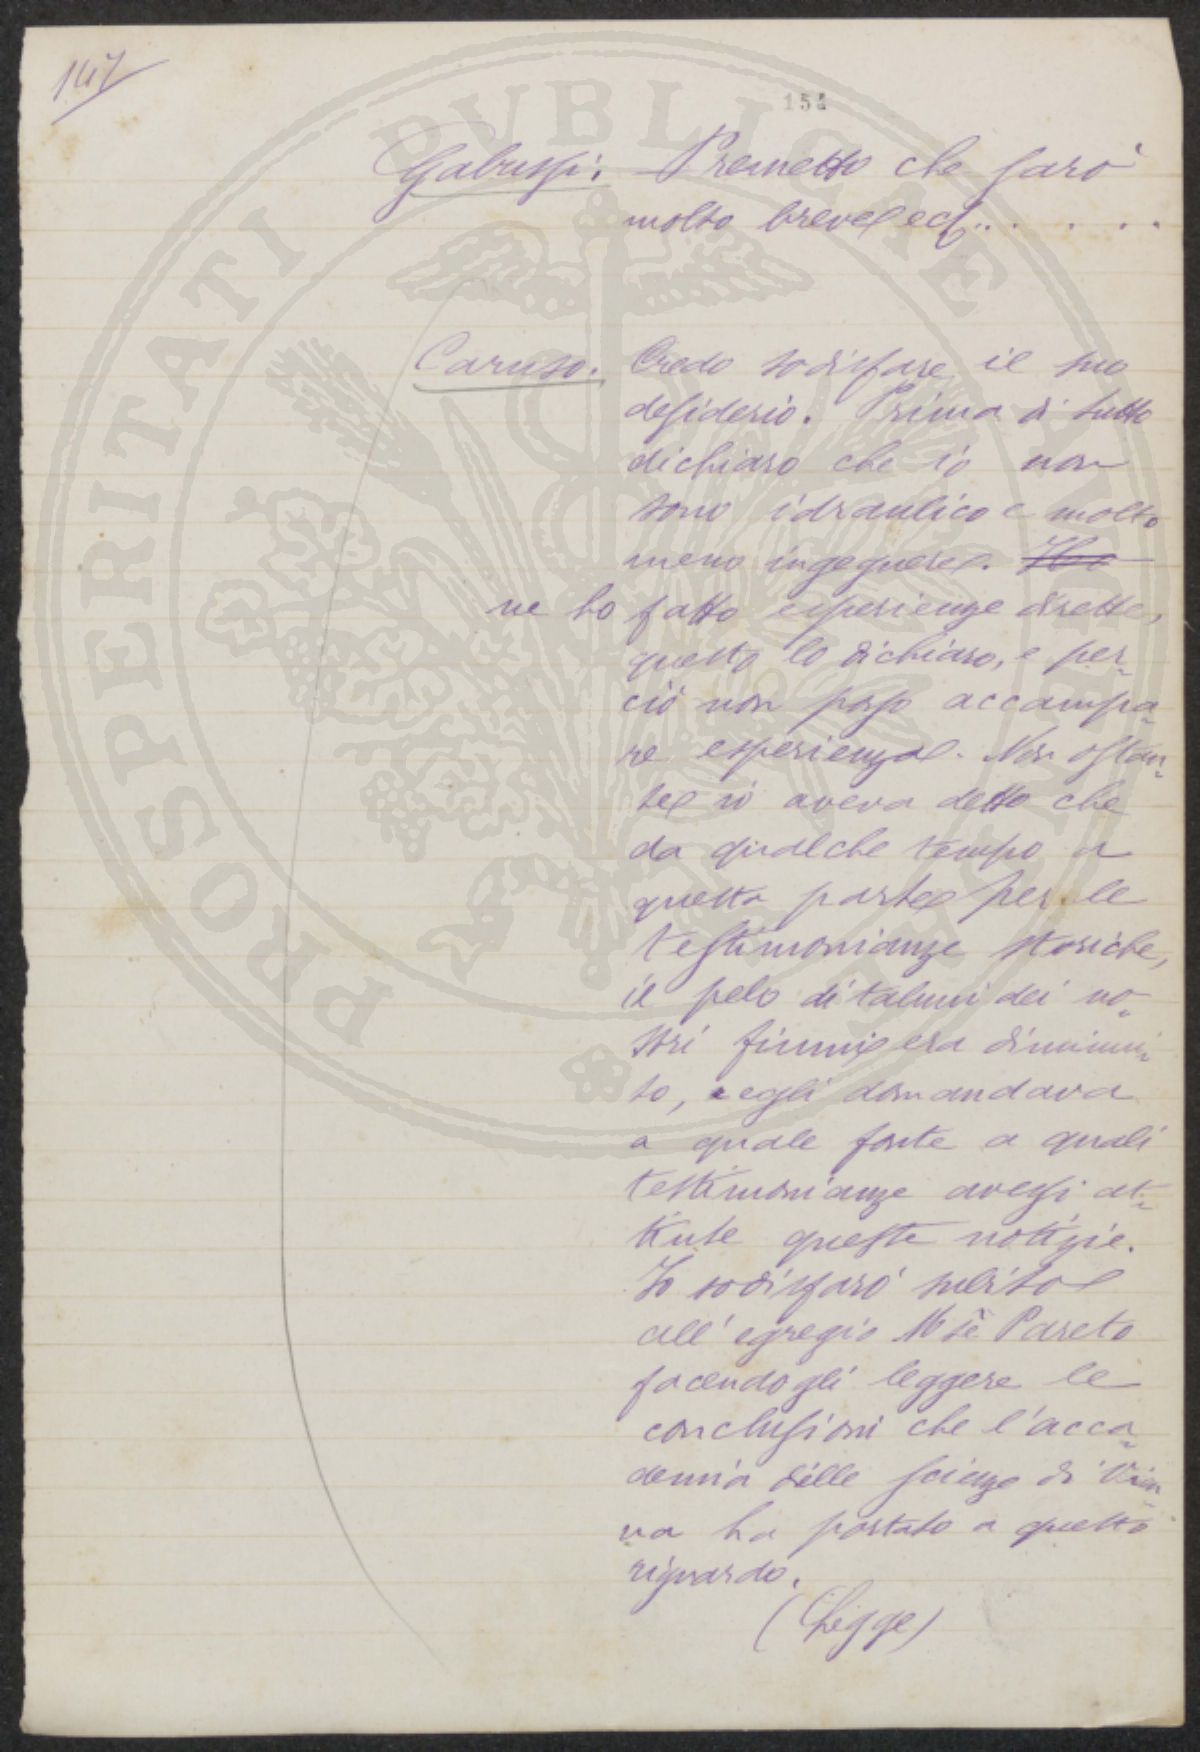 147
154
Gabussi. Premetto che sarò
molto breve ecc. . . . . .
Caruso. Credo sodisfare il suo
desiderio. Prima di tutto
dichiaro che io non
sono idraulico e molto
meno ingegnere. Ho
ne ho fatto esperienze dirette,
questo lo dichiaro, e per-
ciò non posso accampa-
re esperienza. Non ostan-
te io aveva detto che
da qualche tempo a
questa parte per le
testimonianze storiche,
il pelo di taluni dei no-
stri fiumi era diminui-
to, e egli domandava
a quale fonte a quali
testimonianze avessi at-
tinte queste notizie.
Io sodisfarò subito
all'egregio Mse Pareto
facendogli leggere le
conclusioni che l'acca-
demia delle scienze di Vien-
na ha portato a questo
riguardo.
(Legge)
PROSPERITATI PUBLICAE AUGENDAE